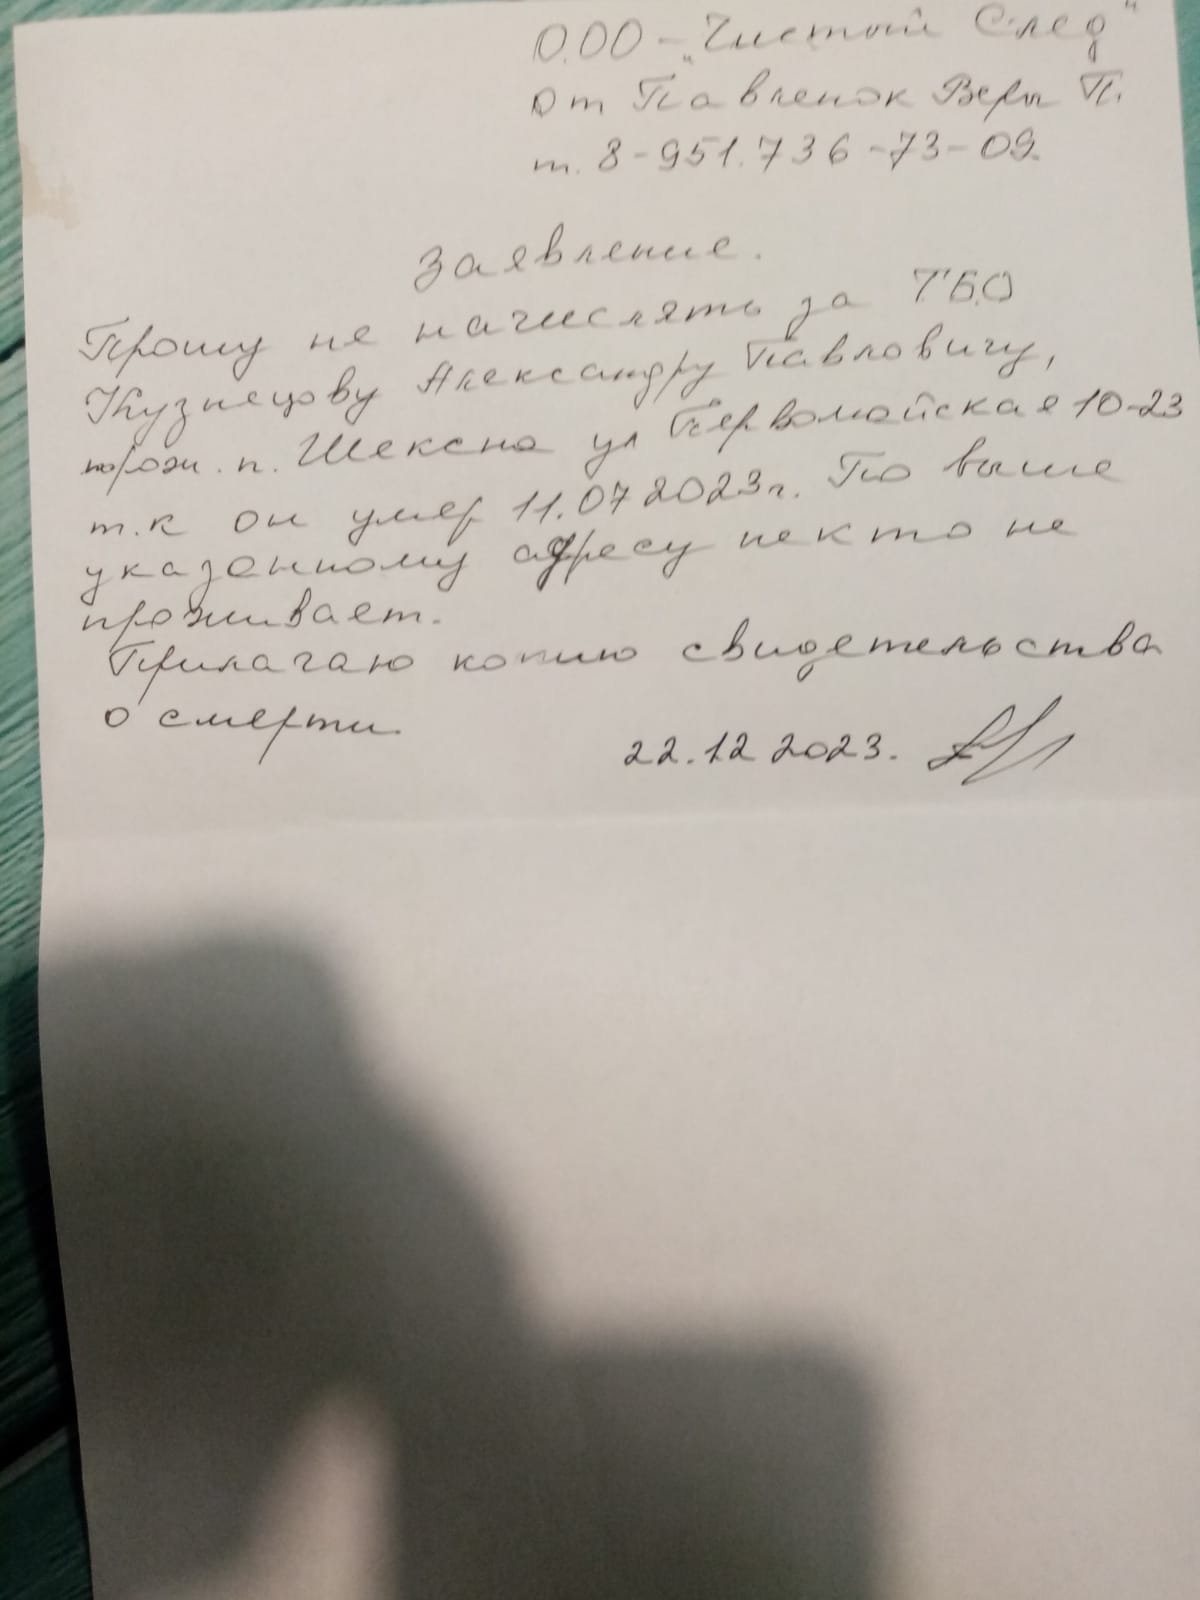 О.ОО - "Чистый След"
от Павленок Веры П.
т. 8-951.736-73-09.
Заявление.
Прошу не начислять за ТБО
Кузнецову Александру Павловичу,
прож. п. Шексна ул Первомайская 10-23
т.к он умер 11.07 2023г. По выше
указанному адресу некто не
проживает.
Прилагаю копию свидетельства
о смерти.
22.12 2023.